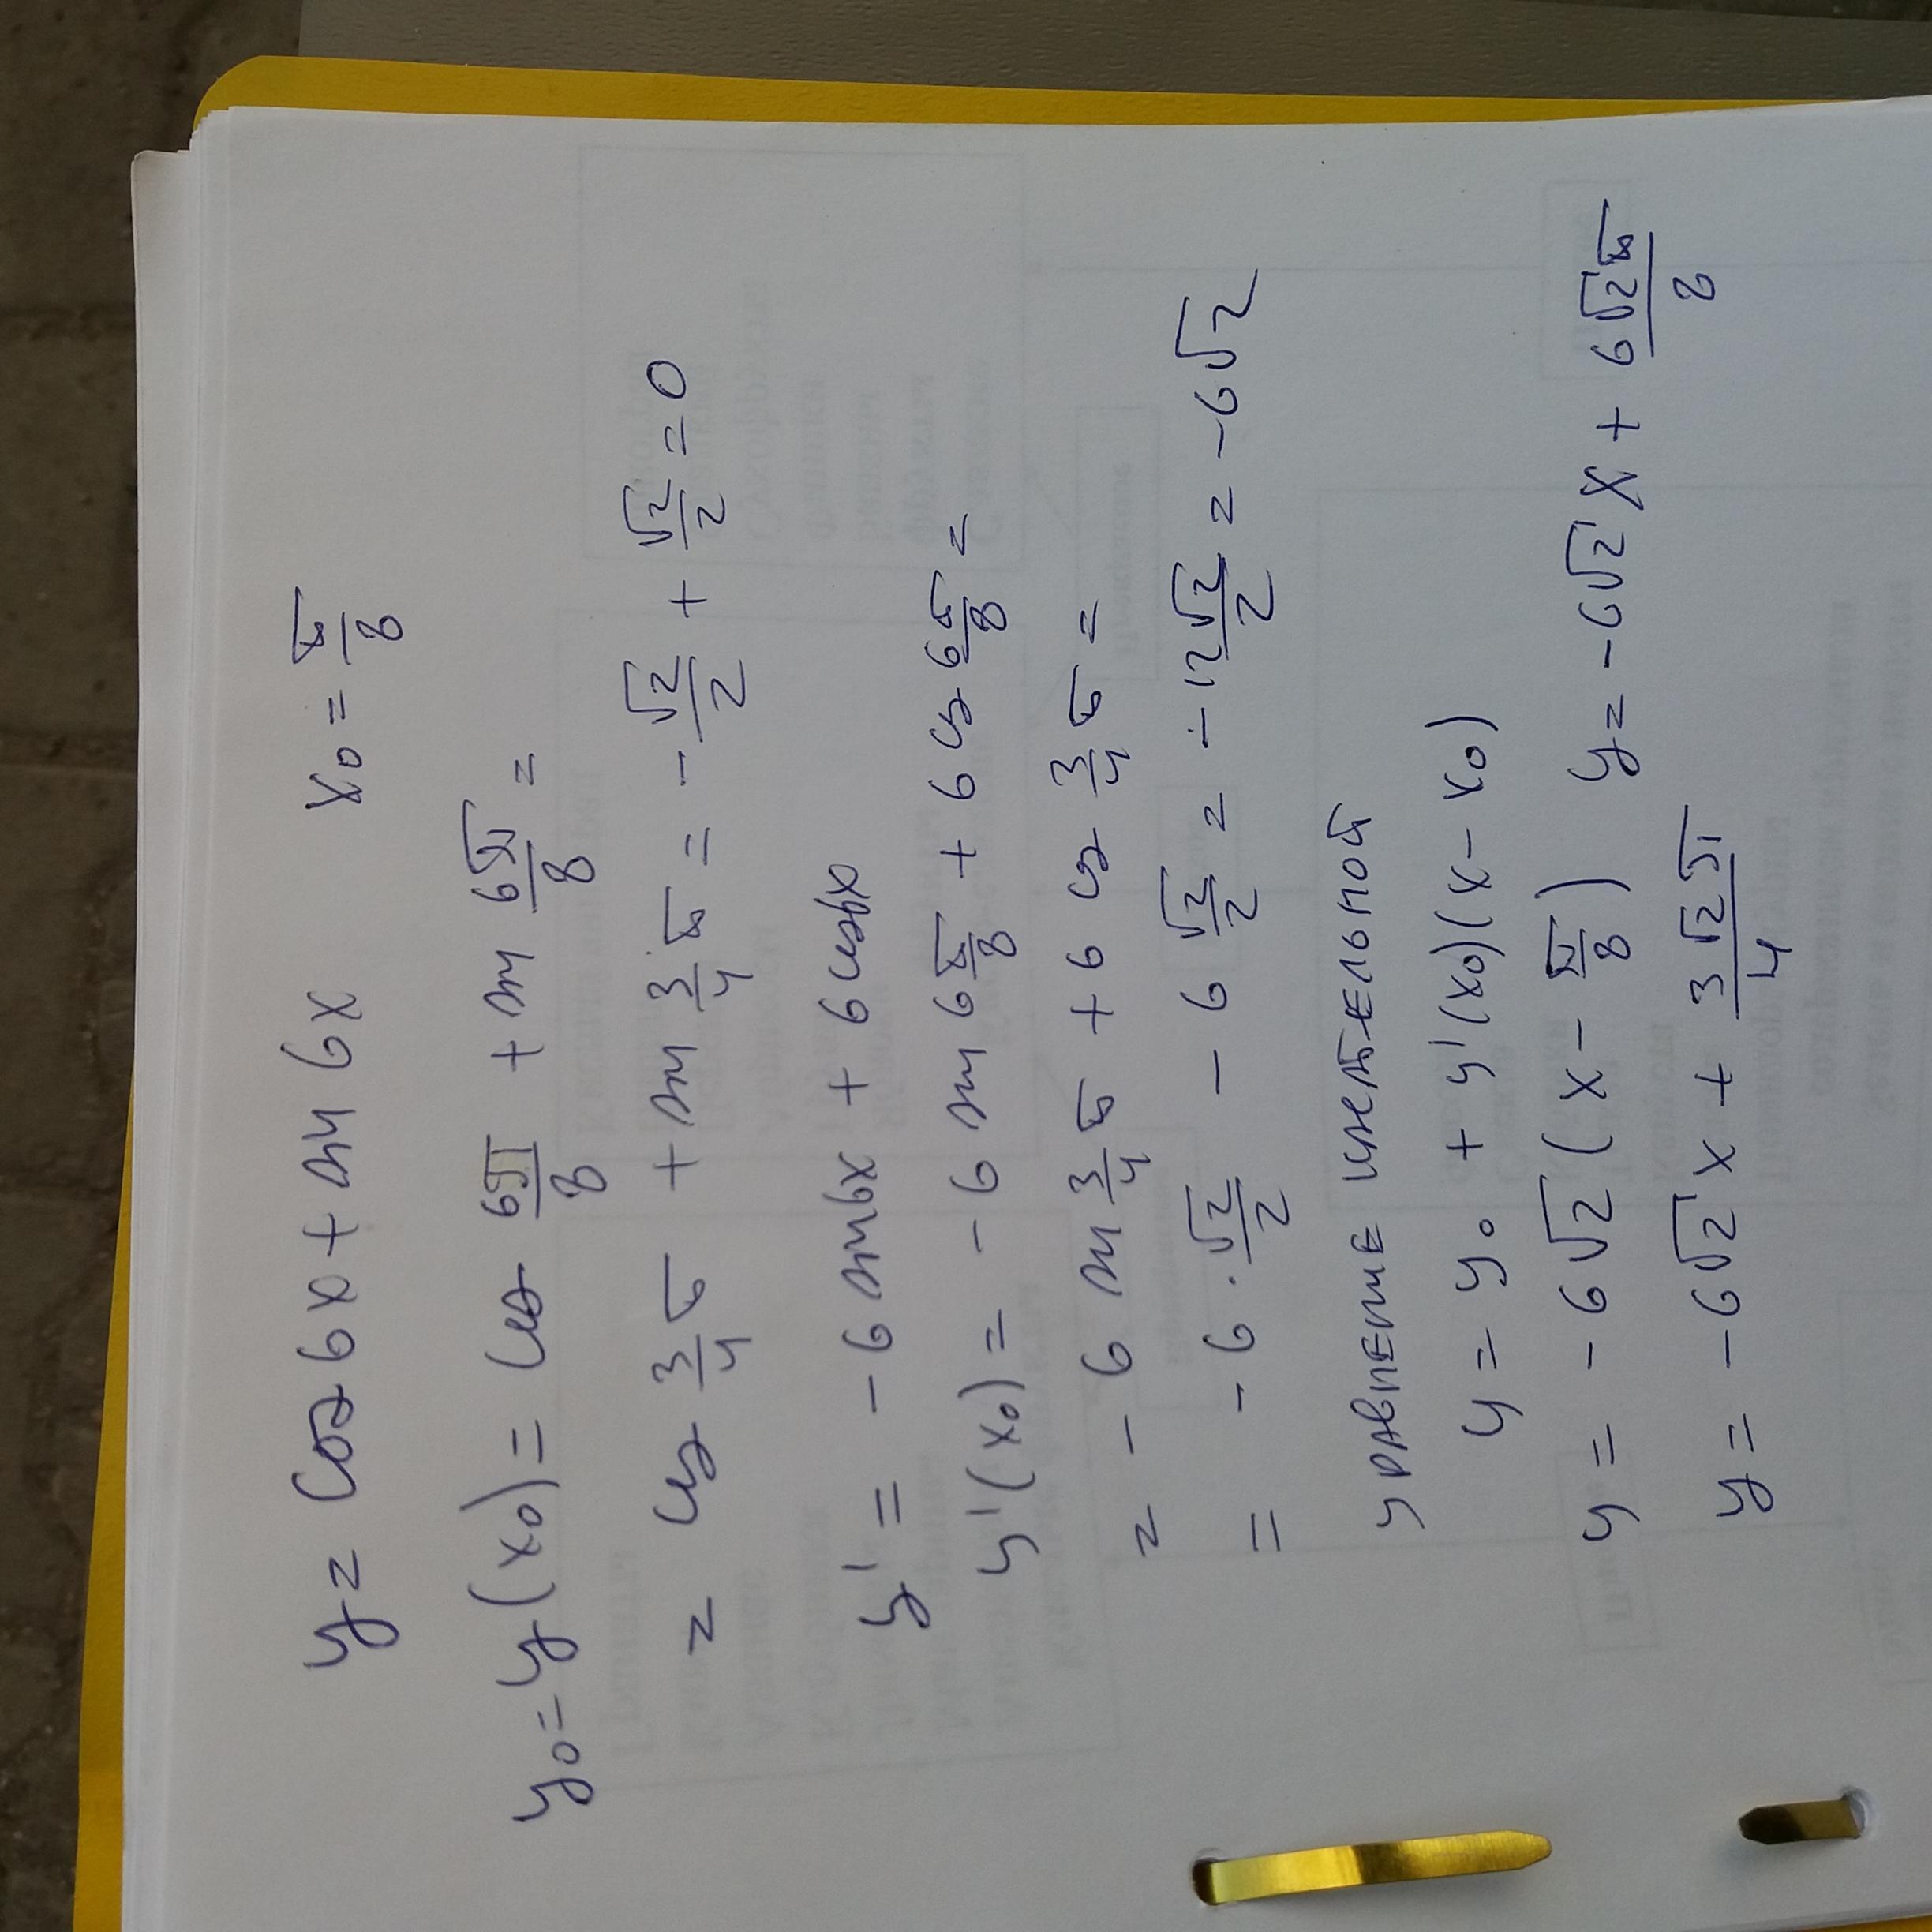 y = cos 6x + sin 6x   x₀ = π/8
y₀ = y(x₀) = cos 6π/8 + sin 6π/8 =
= cos 3/4 π + sin 3/4 π = - √2/2 + √2/2 = 0
y' = - 6 sin 6x + 6 cos 6x
y'(x₀) = - 6 sin 6 π/8 + 6 cos 6 π/8 =
= - 6 sin 3/4 π + 6 cos 3/4 π =
= - 6 · √2/2 - 6 √2/2 = - 12 √2/2 = - 6√2
уравнение касательной
y = y₀ + y'(x₀)(x - x₀)
y = - 6√2 (x - π/8)   y = - 6√2 x + 6√2π/8
y = - 6√2 x + 3√2π/4